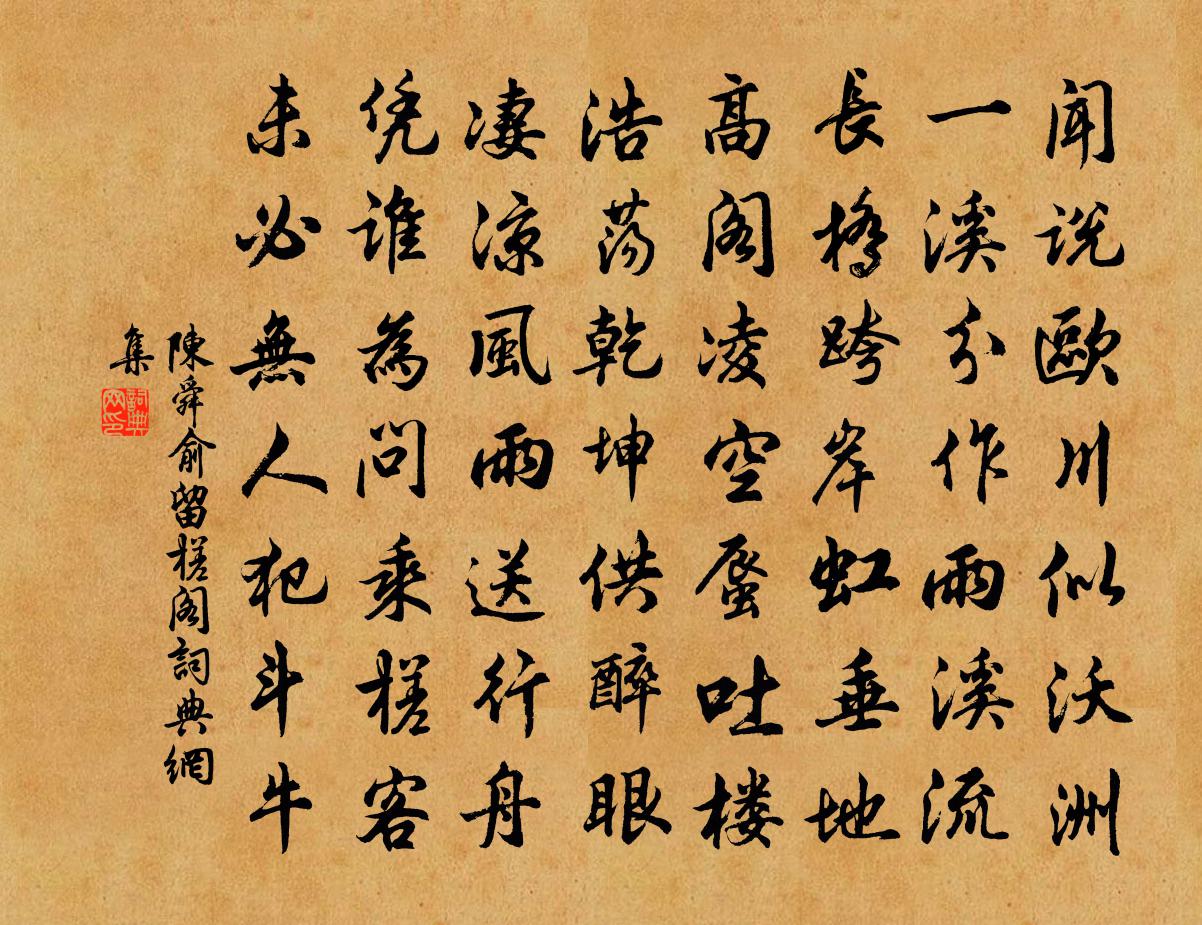 闻说歐川似沃洲
一溪分作雨溪流
長橋跨岸虹垂地
高阁凌空蜃吐楼
浩荡乾坤供醉眼
凄凉風雨送行舟
凭谁為问乘槎客
未必無人犯斗牛
陳舜俞留槎阁詞典網
集
詞典
网印